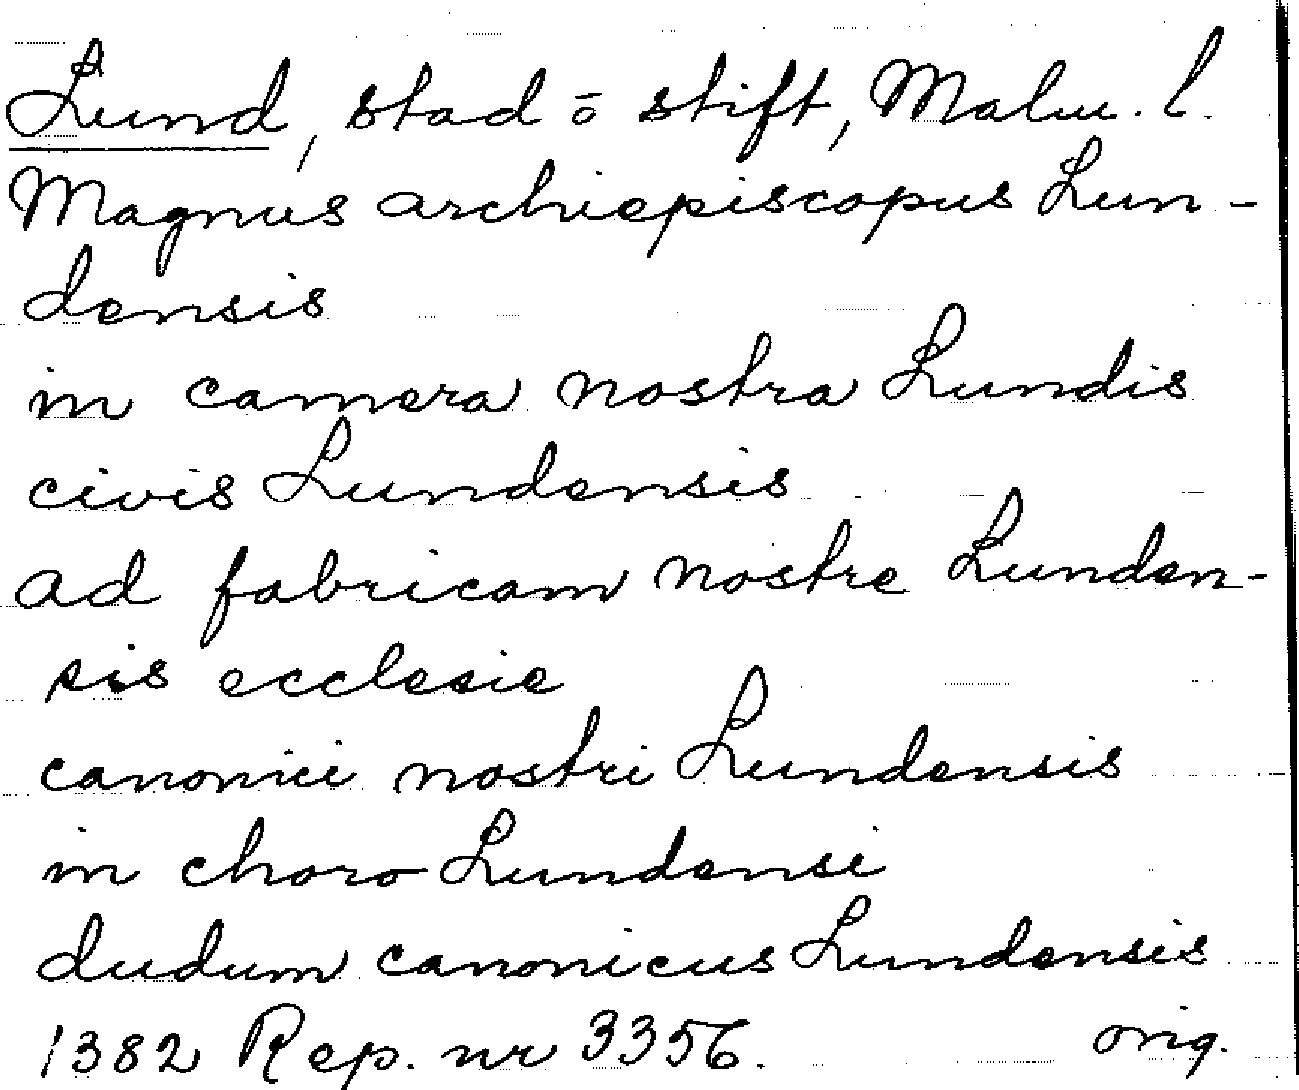 Lund, stad o stift, Malm. l.
Magnus archiepiscopus Lun-
densis
in camera nostra Lundis
civis Lundensis
ad fabricam nostre Lunden-
sis ecclesie
canonici nostri Lundensis
in choro Lundensi
dudum canonicus Lundensis
1382 Rep. nr 3356. orig.